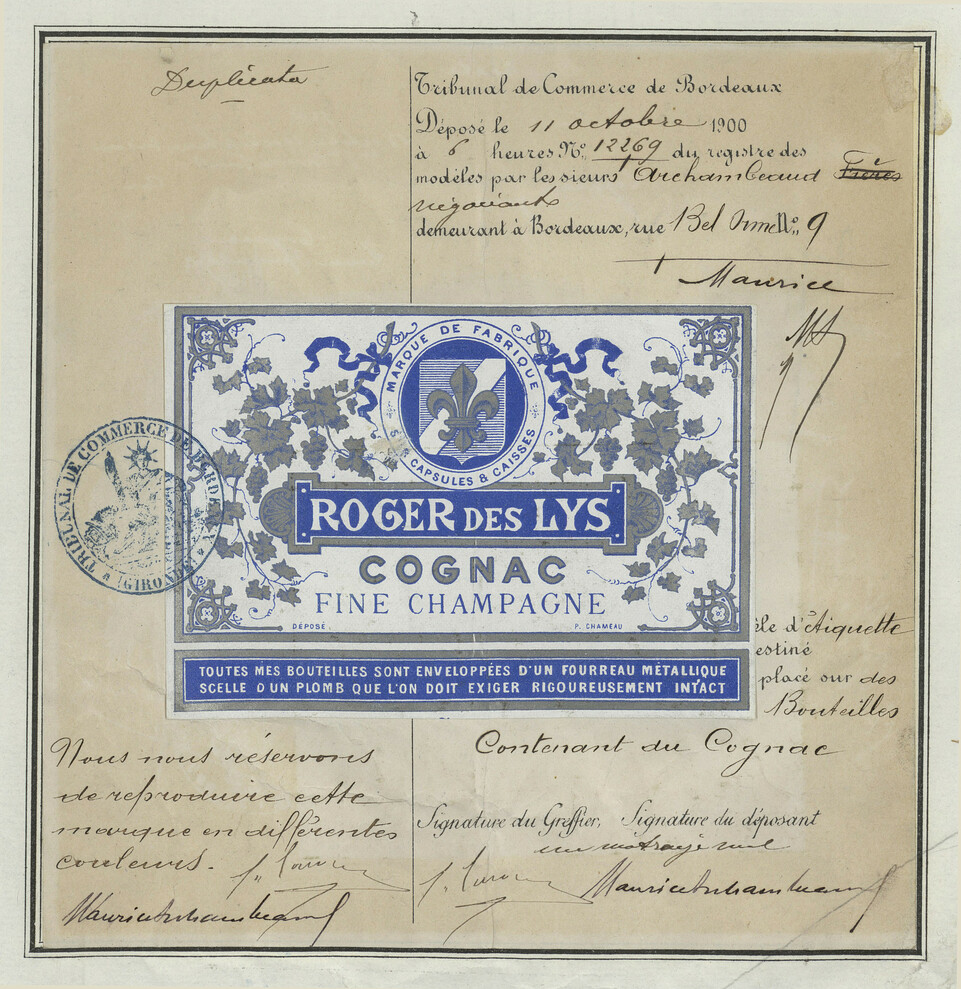 Duplicata
Tribunal de Commerce de Bordeaux
Déposé le 11 octobre 1900
à 6 heures No. 12269 du registre des
modèles par les sieurs Archambeaud Frères
négociants
demeurant à Bordeaux, rue Bel Orme No. 9
Maurice
MA
MARQUE DE FABRIQUE
CAPSULES & CAISSES
ROGER DES LYS
COGNAC
FINE CHAMPAGNE
DÉPOSÉ.
P. CHAMEAU
TOUTES MES BOUTEILLES SONT ENVELOPPÉES D'UN FOURREAU MÉTALLIQUE
SCELLE D UN PLOMB QUE L'ON DOIT EXIGER RIGOUREUSEMENT INTACT
TRIBUNAL DE COMMERCE DE BORDEAUX
(GIRONDE)
èle d'Etiquette
estiné
placé sur des
Bouteilles
Contenant du Cognac
Nous nous réservons
de reproduire cette
marque en différentes
couleurs.
Signature du Greffier, Signature du déposant
un mot rayé nul
Maurice Archambeaud
Maurice Archambeaud